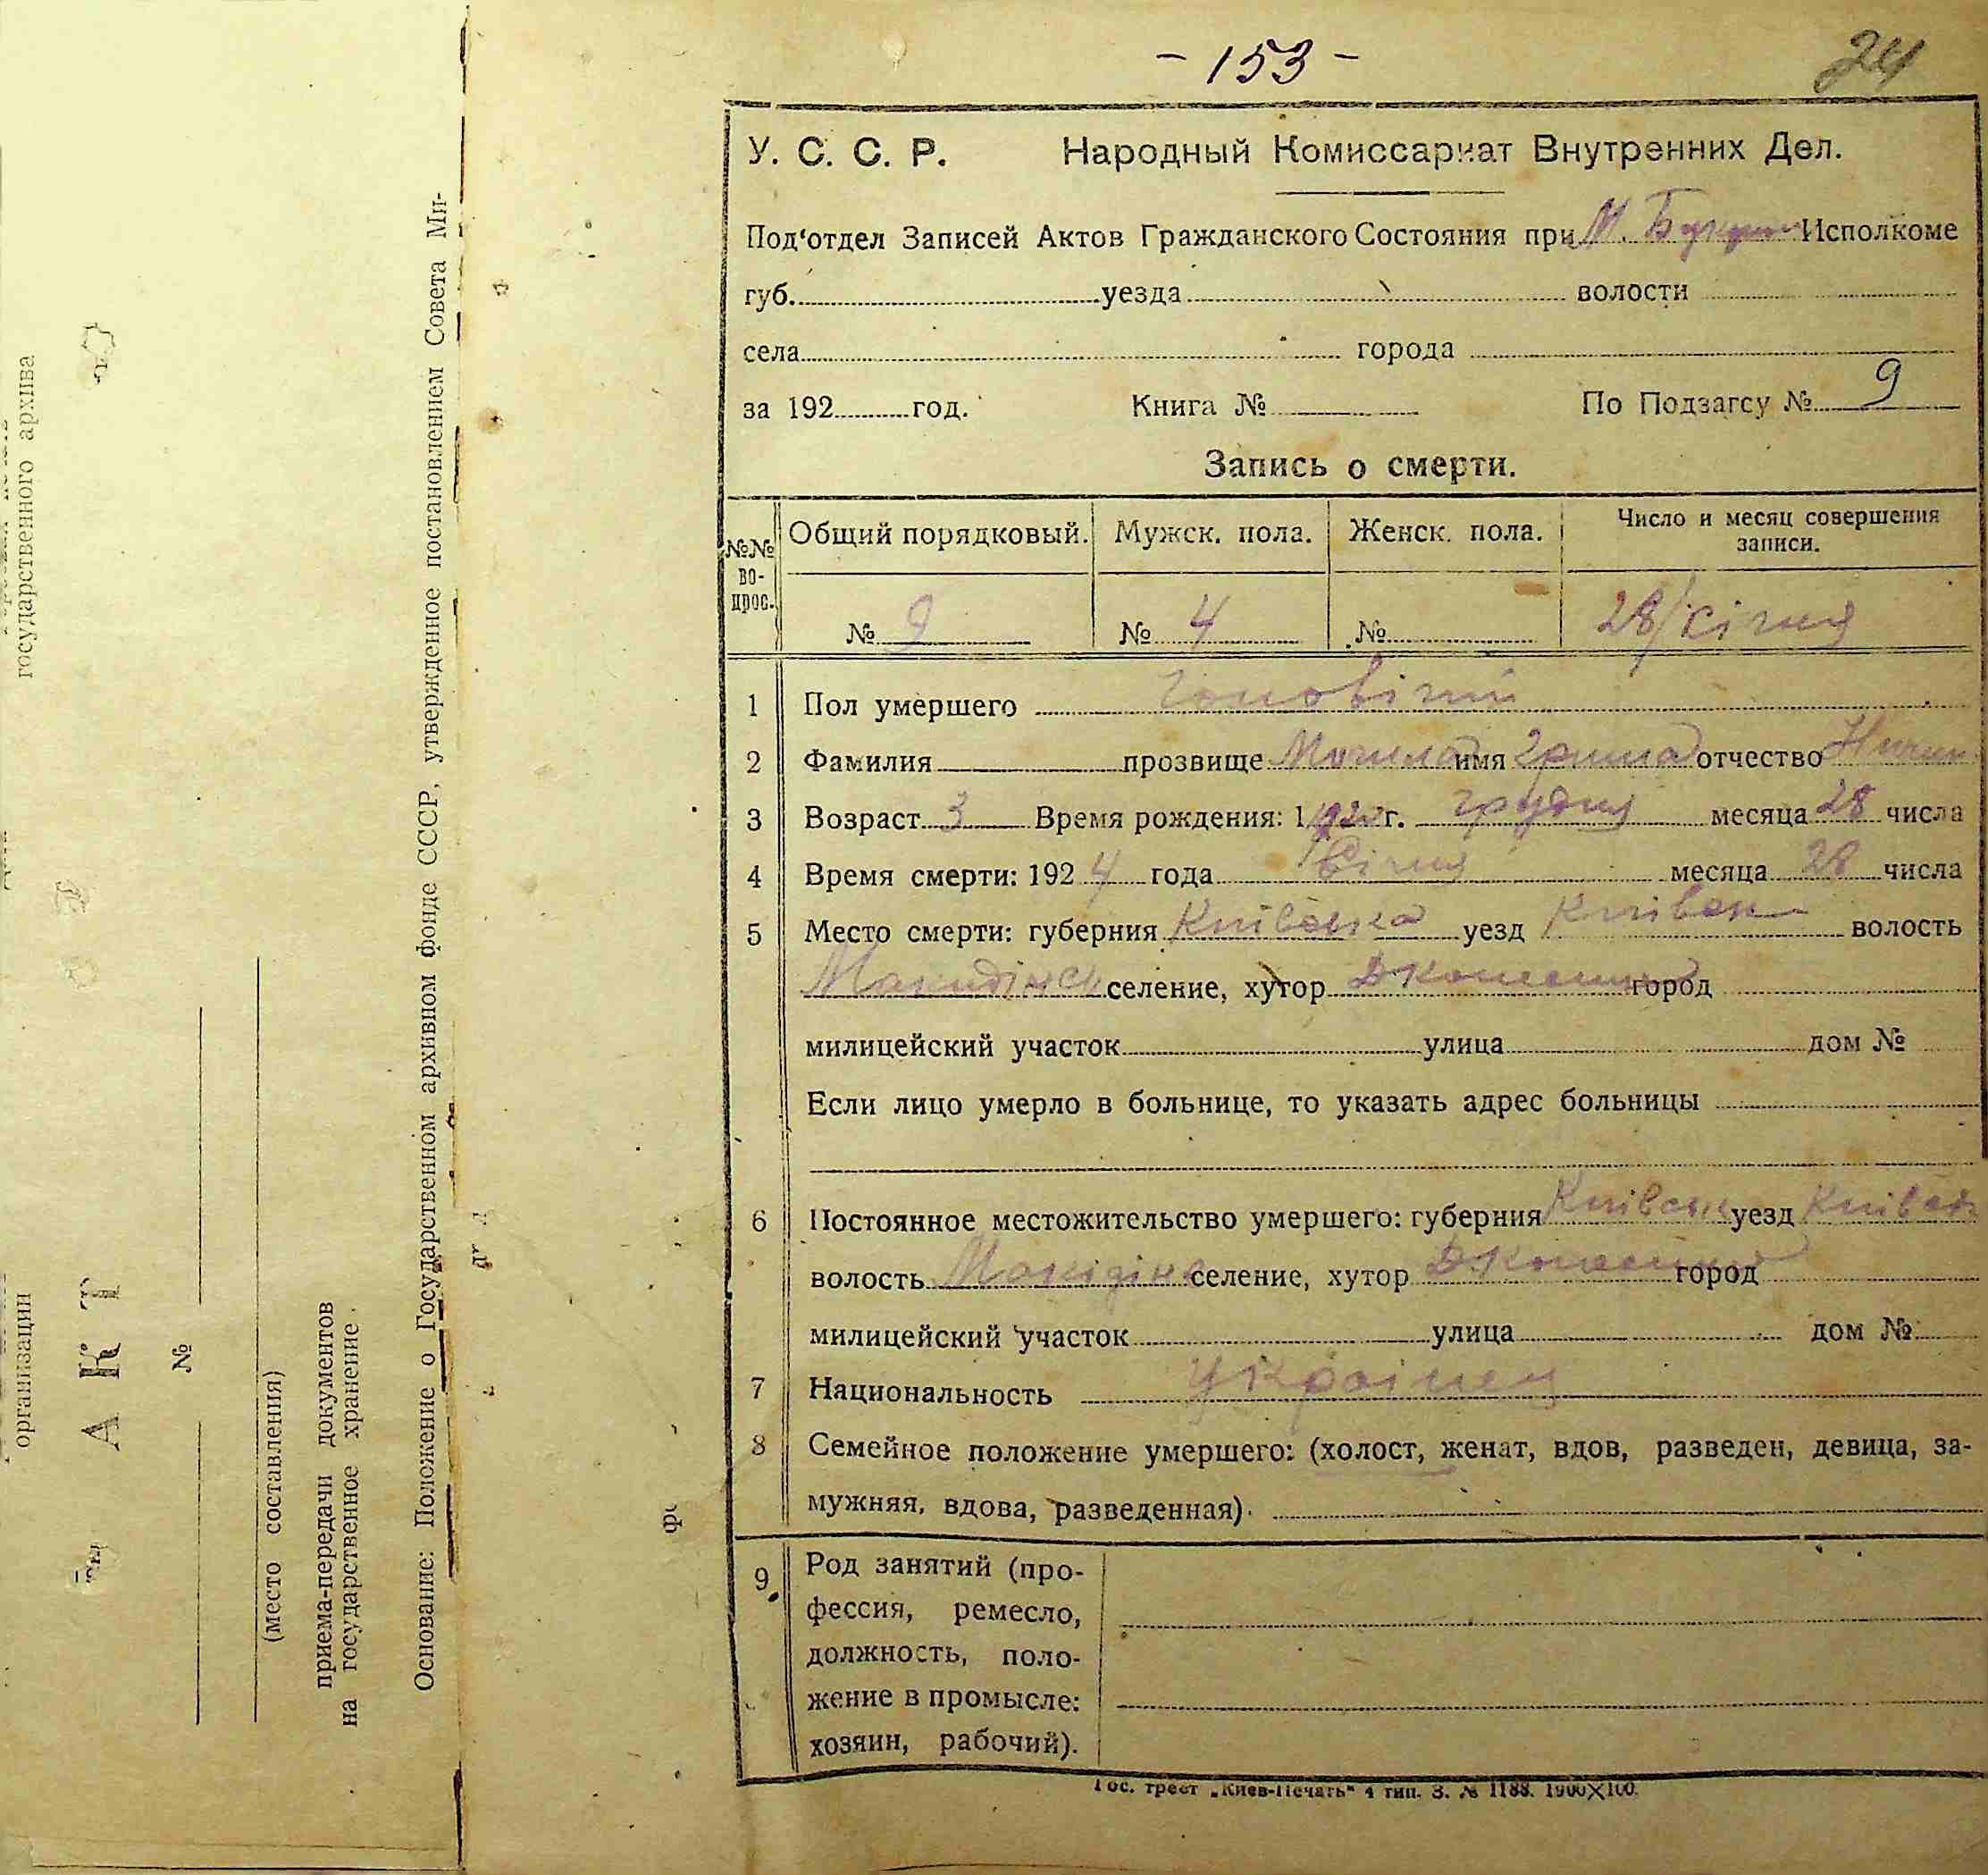 - 153 -
24
У. С. С. Р. Народный Комиссариат Внутренних Дел.
Под‘отдел Записей Актов Гражданского Состояния при М. Исполкоме
губ. уезда волости
села города
за 192 год. Книга № По Подзагсу № 9
Запись о смерти.
№№ во-прос. Общий порядковый. Мужск. пола. Женск. пола. Число и месяц совершения записи.
№ 9 № 4 № 28/січня
1 Пол умершего чоловічий
2 Фамилия прозвище Могила имя Гриша отчество
3 Возраст 3 Время рождения: 1920 г. грудня месяца 28 числа
4 Время смерти: 1924 года Січня месяца 28 числа
5 Место смерти: губерния Київська уезд Київськ волость
селение, хутор город
милицейский участок улица дом №
Если лицо умерло в больнице, то указать адрес больницы
6 Постоянное местожительство умершего: губерния Київськ уезд Київськ
волость селение, хутор город
милицейский участок улица дом №
7 Национальность Українец
8 Семейное положение умершего: (холост, женат, вдов, разведен, девица, за-
мужняя, вдова, разведенная).
9 Род занятий (про-
фессия, ремесло,
должность, поло-
жение в промысле:
хозяин, рабочий).
Гос. трест „Киев-Печать“ 4 тип. З. № 1188. 1900X100.
государственного архива
организации
АКТ
№
(место составления)
приема-передачи документов
на государственное хранение
Основание: Положение о Государственном архивном фонде СССР, утвержденное постановлением Совета Ми-